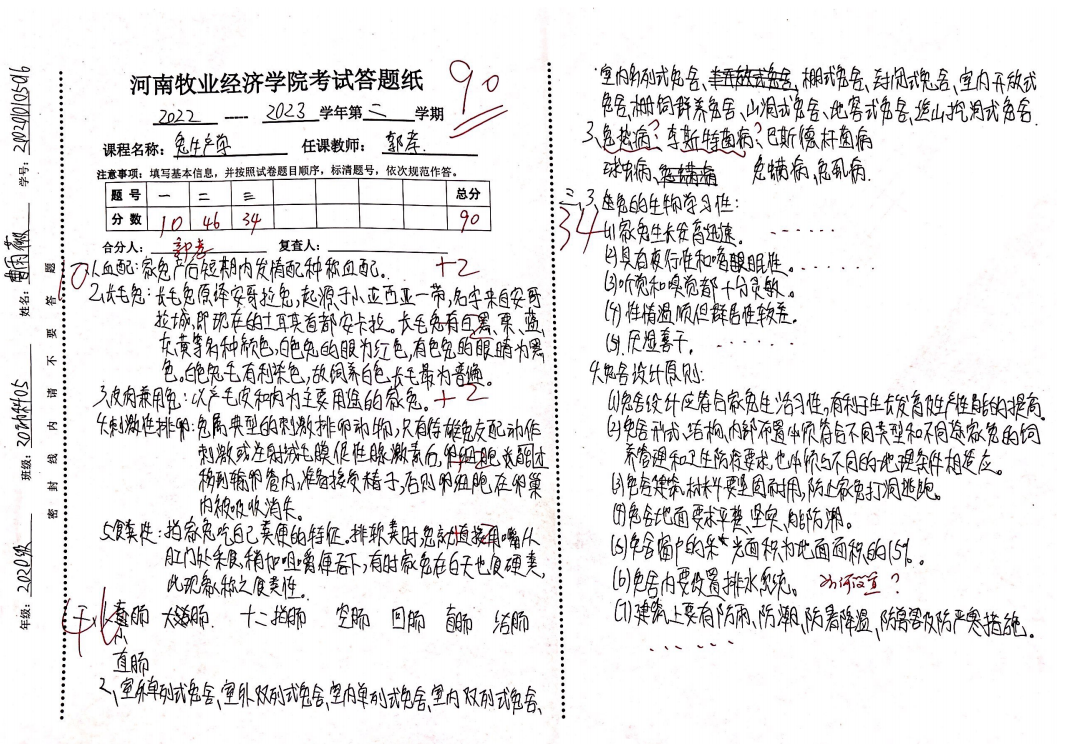 河南牧业经济学院考试答题纸
90
2022 ---- 2023 学年第 二 学期
课程名称: 兔生产学 任课教师: 郭孝
注意事项: 填写基本信息，并按照试卷题目顺序，标清题号，依次规范作答。
题号 一 二 三 总分
分数 10 46 34 90
合分人: 郭孝 复查人:
年级: 2020级 班级: 姓名: 曹雨薇 学号:
密封线内请不要答题
10
1.血配:家兔产后短期内发情配种称血配. +2
2.长毛兔:长毛兔原译安哥拉兔,起源于小亚西亚一带,名字来自安哥
拉城,即现在的土耳其首都安卡拉。长毛兔有白、黑、栗、蓝、
灰、黄等各种颜色,白色兔的眼为红色,有色兔的眼睛为黑
色。白色兔毛有利染色,故饲养白色长毛最为普通。
3.皮肉兼用兔:以产毛皮和肉为主要用途的家兔。 +2
4.刺激性排卵:兔属典型的刺激排卵动物,只有待雄兔交配动作
刺激或注射绒毛膜促性腺激素后,卵细胞
移到输卵管内,准备接受精子,否则卵细胞在卵巢
内被吸收消失。
5.食粪性:指家兔吃自己粪便的特征。排软粪时兔会直接用嘴从
肛门处采食,稍加咀嚼便吞下,有时家兔在白天也食硬粪,
此现象称之食粪性。
盲肠 大 十二指肠 空肠 回肠 盲肠 结肠
小
直肠
2、室外单列式兔舍、室外双列式兔舍、室内单列式兔舍、室内双列式兔舍、
室内多列式兔舍、棚式兔舍、封闭式兔舍、室内开放式
兔舍、栅饲群养兔舍、山洞式兔舍、地窖式兔舍、靠山挖洞式兔舍.
3、兔热病?李斯特菌病?巴斯德杆菌病
球虫病、 兔螨病 兔虱病.
34
三、3.
家兔的生物学习性:
(1)家兔生长发育迅速. ......
(2)具有夜行性和嗜眠性。 ......
(3)听觉和嗅觉都十分灵敏。
(4)性情温顺但群居性较差。
(5).厌湿喜干. ......
4.兔舍设计原则:
(1)兔舍设计应符合家兔生活习性,有利于生长发育及生产性能的提高.
(2)兔舍形式、结构、内部布置必须符合不同类型和不同用途家兔的饲
养管理和卫生防疫要求,也必须与不同的地理条件相适应。
(3)兔舍建筑材料要坚固耐用,防止家兔打洞逃跑。
(4)兔舍地面要求平整、坚实,能防潮。
(5)兔舍窗户的采光面积为地面面积的15%。
(6)兔舍内要设置排水系统。 如何设置?
(7)建筑上要有防雨、防潮、防暑降温、防兽害及防严寒措施。
......